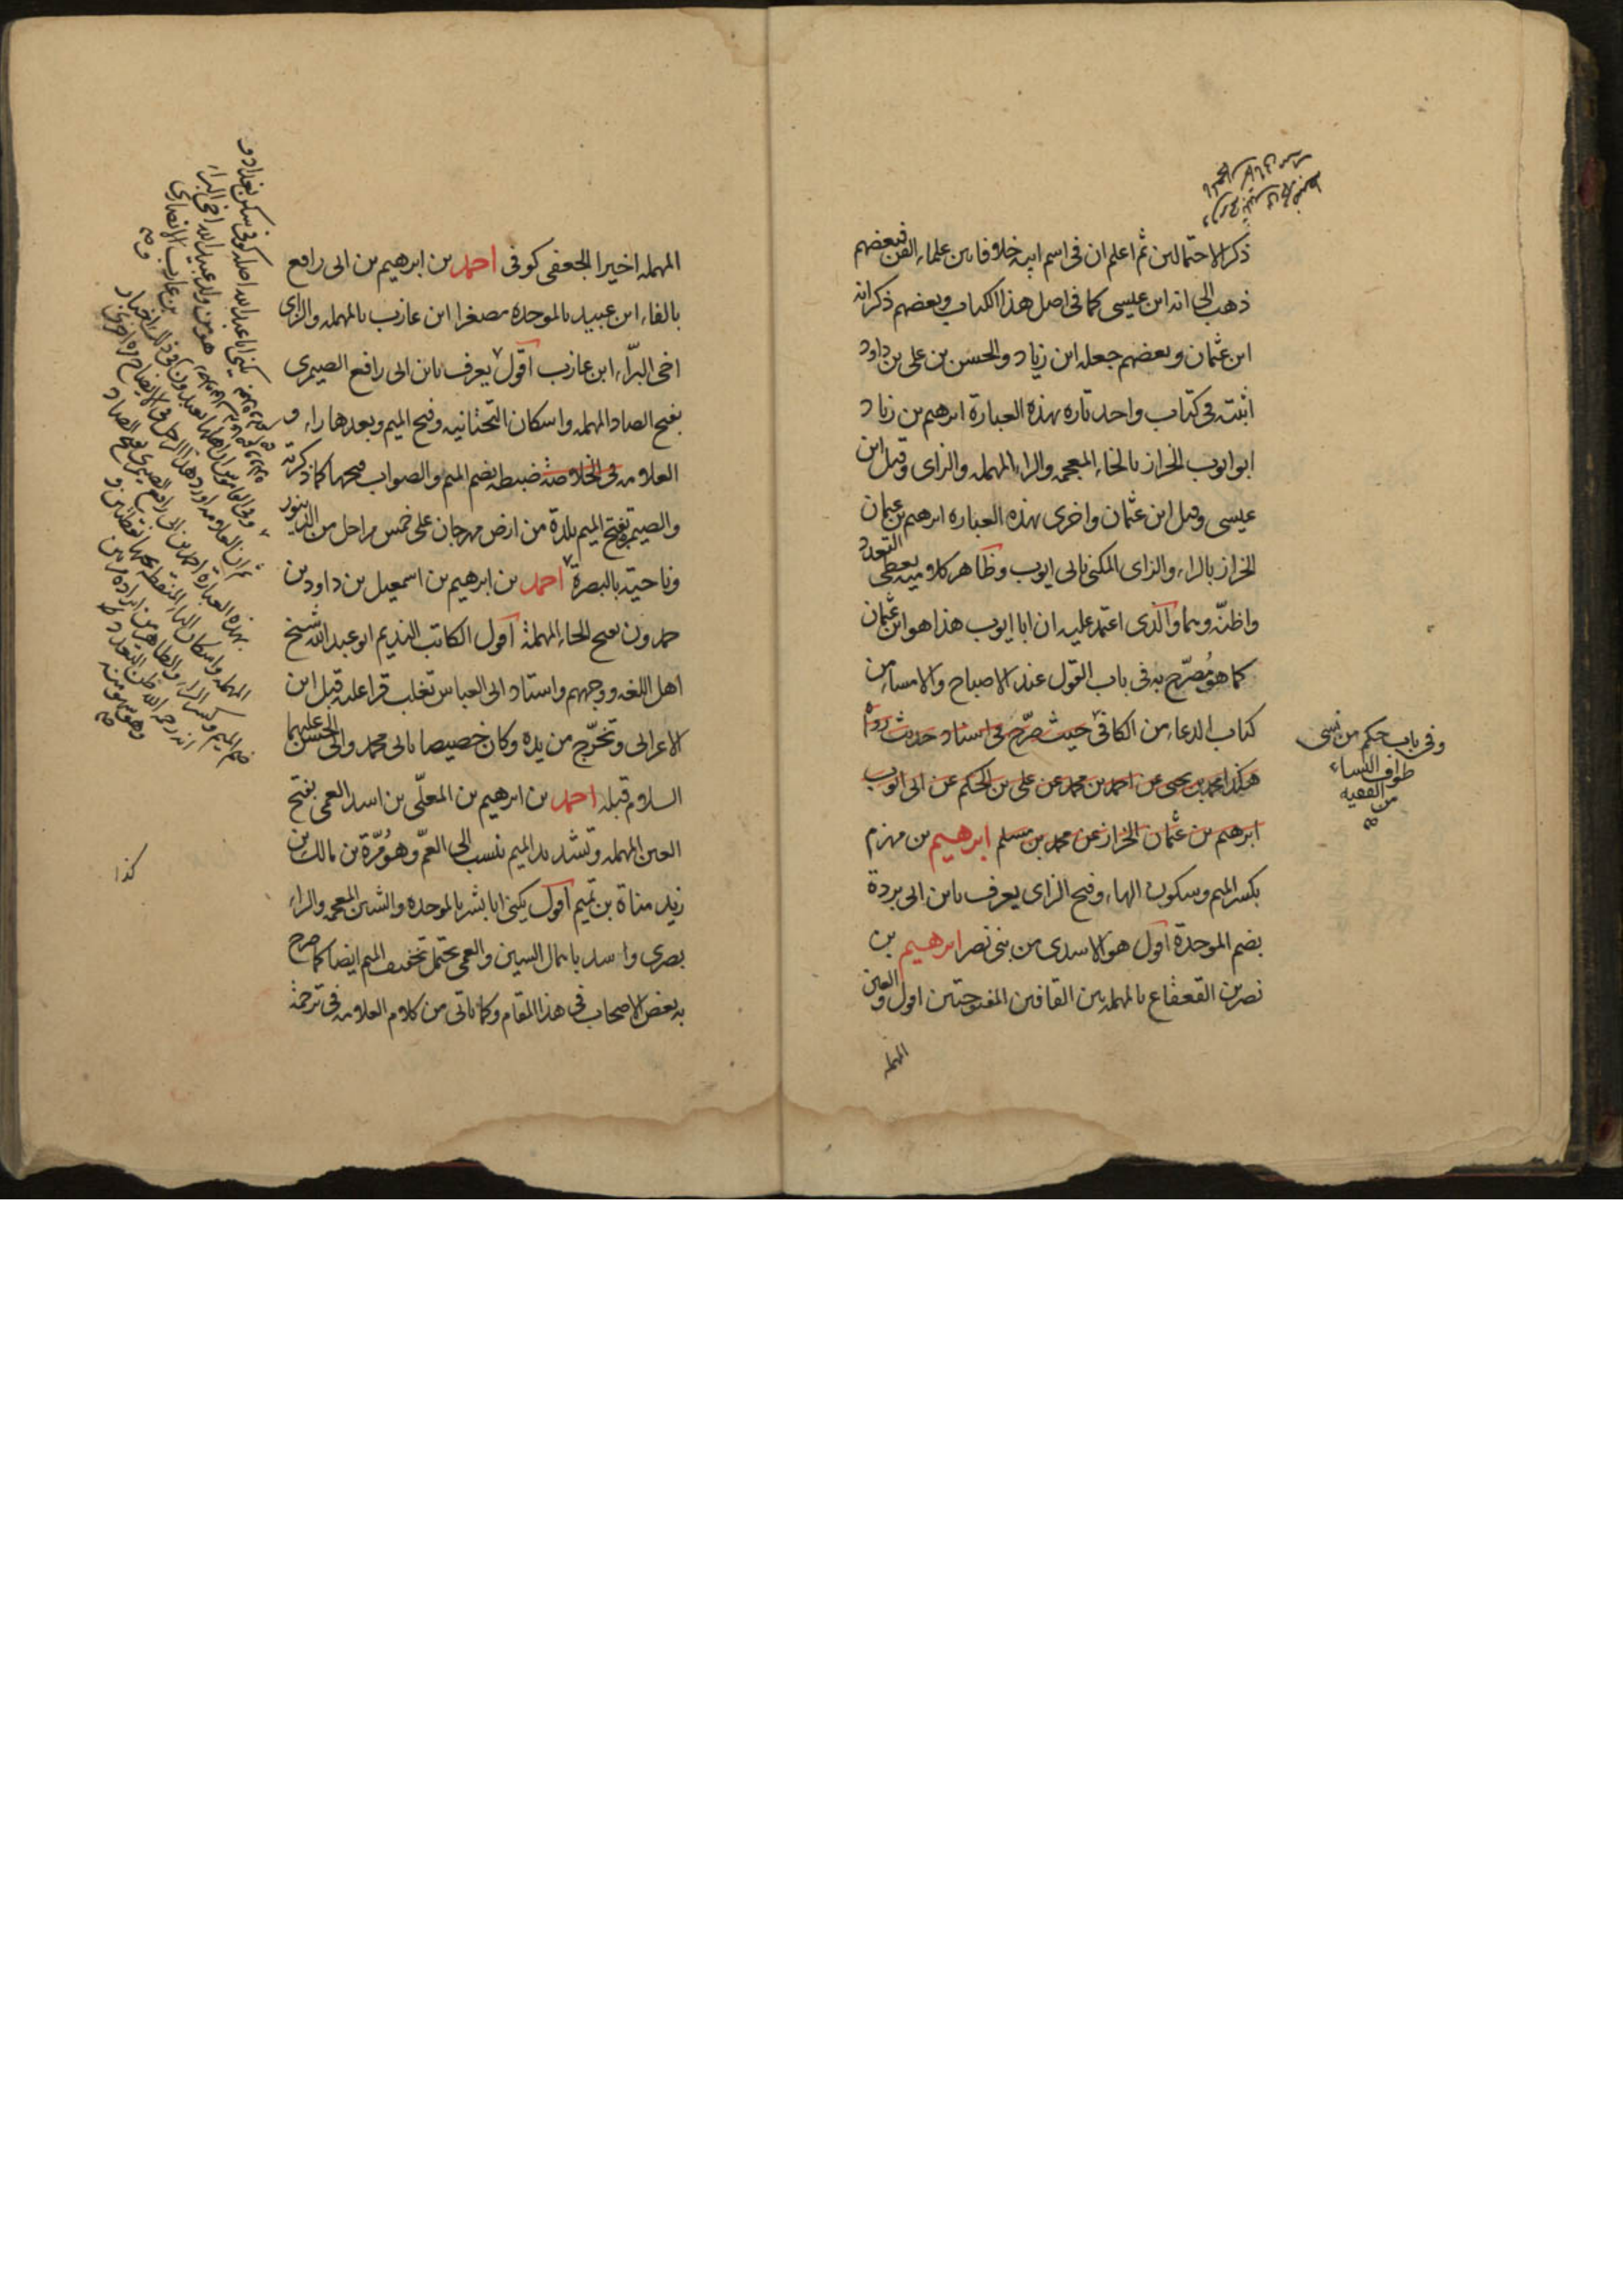 ذكر الاحتمالين ثم اعلم ان فى اسم ابيه خلافا بين علماء الفن فبعضهم
ذهب الى انه ابن عيسى كما فى اصل هذا الكتاب وبعضهم ذكر انه
ابن عثمان وبعضهم جعله ابن زياد والحسن بن على بن داود
اثبته فى كتاب واحد تاره بهذه العبارة ابرهيم بن زياد
ابو ايوب الخزاز بالخاء المعجمه والراء المهمله والزاى وقيل ابن
عيسى وقيل ابن عثمان واخرى بهذه العباره ابرهيم بن عثمان
الخراز بالراء والزاى المكنى بابى ايوب وظاهر كلاميه يعطى التعدد
واظنّه وهما والذى اعتمد عليه ان ابا ايوب هذا هو ابن عثمان
كما هو مُصرّح به فى باب القول عند الاصباح والامساء من
كتاب الدعاء من الكافى حيث صرّح فى اسناد حديث رواه
هكذا محمد بن يحيى عن احمد بن محمد عن على بن الحكم عن ابى ايوب
ابرهيم بن عثمان الخزاز عن محمد بن مسلم ابرهيم بن مهزم
بكسر الميم وسكون الهاء وفتح الزاى يعرف بابن ابى بردة
بضم الموحدة اقول هو الاسدى من بنى نصر ابرهيم بن
نصر بن القعقاع بالمهمله بين القافين المفتوحتين اول والعين
المهمله
وفى باب حكم من نسى
طواف النساء
من الفقيه
المهمله اخيرا الجعفى كوفى احمد بن ابرهيم بن ابى رافع
بالفاء ابن عبيد بالموحده مصغرا ابن عازب بالمهمله والزاى
اخى البرّاء ابن عازب اقول يعرف بابن ابى رافع الصيمرى
بفتح الصاد المهمله واسكان التحتانيه وفتح الميم وبعدها راء و
العلامه فى الخلاصة ضبطه بضم الميم والصواب فتحها كما ذكرته
والصيمره بفتح الميم بلدة من ارض مهرجان على خمس مراحل من الدينور
وناحية بالبصرة احمد بن ابرهيم بن اسمعيل بن داود بن
حمدون بفتح الحاء المهملة اقول الكاتب النديم ابو عبد الله شيخ
اهل اللغه ووجههم واستاد ابى العباس تغلب قرا عليه قبل ابن
الاعرابى وتخرّج من يده وكان خصيصا بابى محمد وابى الحسن عليهما
السلام قبله احمد بن ابرهيم بن المعلّى بن اسد العمى بفتح
العين المهمله وتشديد الميم ينسب الى العمّ وهو مُرّة بن مالك بن
زيد مناة بن تميم اقول يكنى ابا بشر بالموحده والشين المعجمه والراء
بصرى واسد باهمال السين والعمى يحتمل تخفيف الميم ايضا كما صرح
به بعض الاصحاب فى هذا المقام وكما ياتى من كلام العلامه فى ترجمة
يكنى ابا عبد الله اصله كوفى سكن بغداد و
هو من ولد عبيد الله اخى البراء
بن عازب الانصارى
كذا